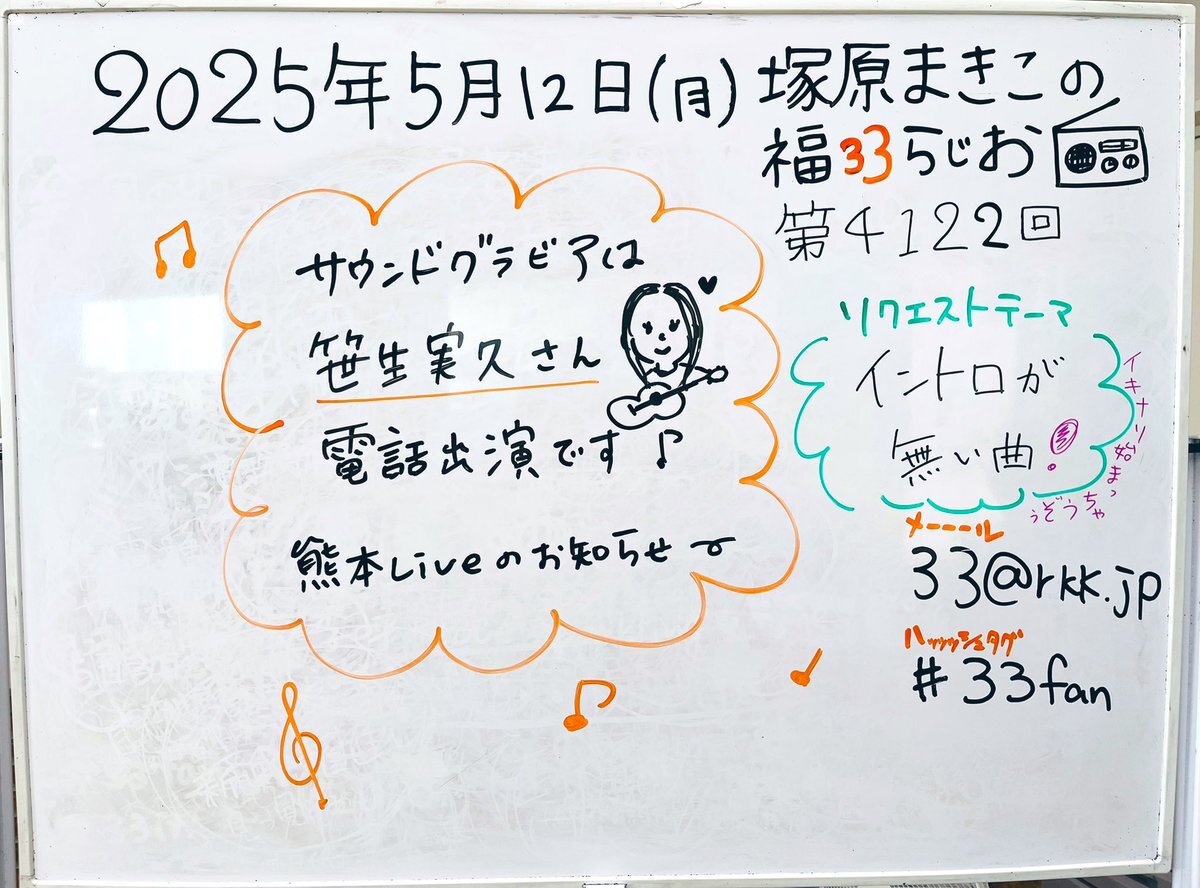 2025年5月12日(月) 塚原まきこの
福33らじお
第4122回
サウンドグラビアは
笹生実久さん
電話出演です♪
熊本Liveのお知らせ
リクエストテーマ
イントロが
無い曲!
イキナリ始まっ
ちゃうぞぅ
メーーール
33@rkk.jp
ハッッッシュタグ
#33fan